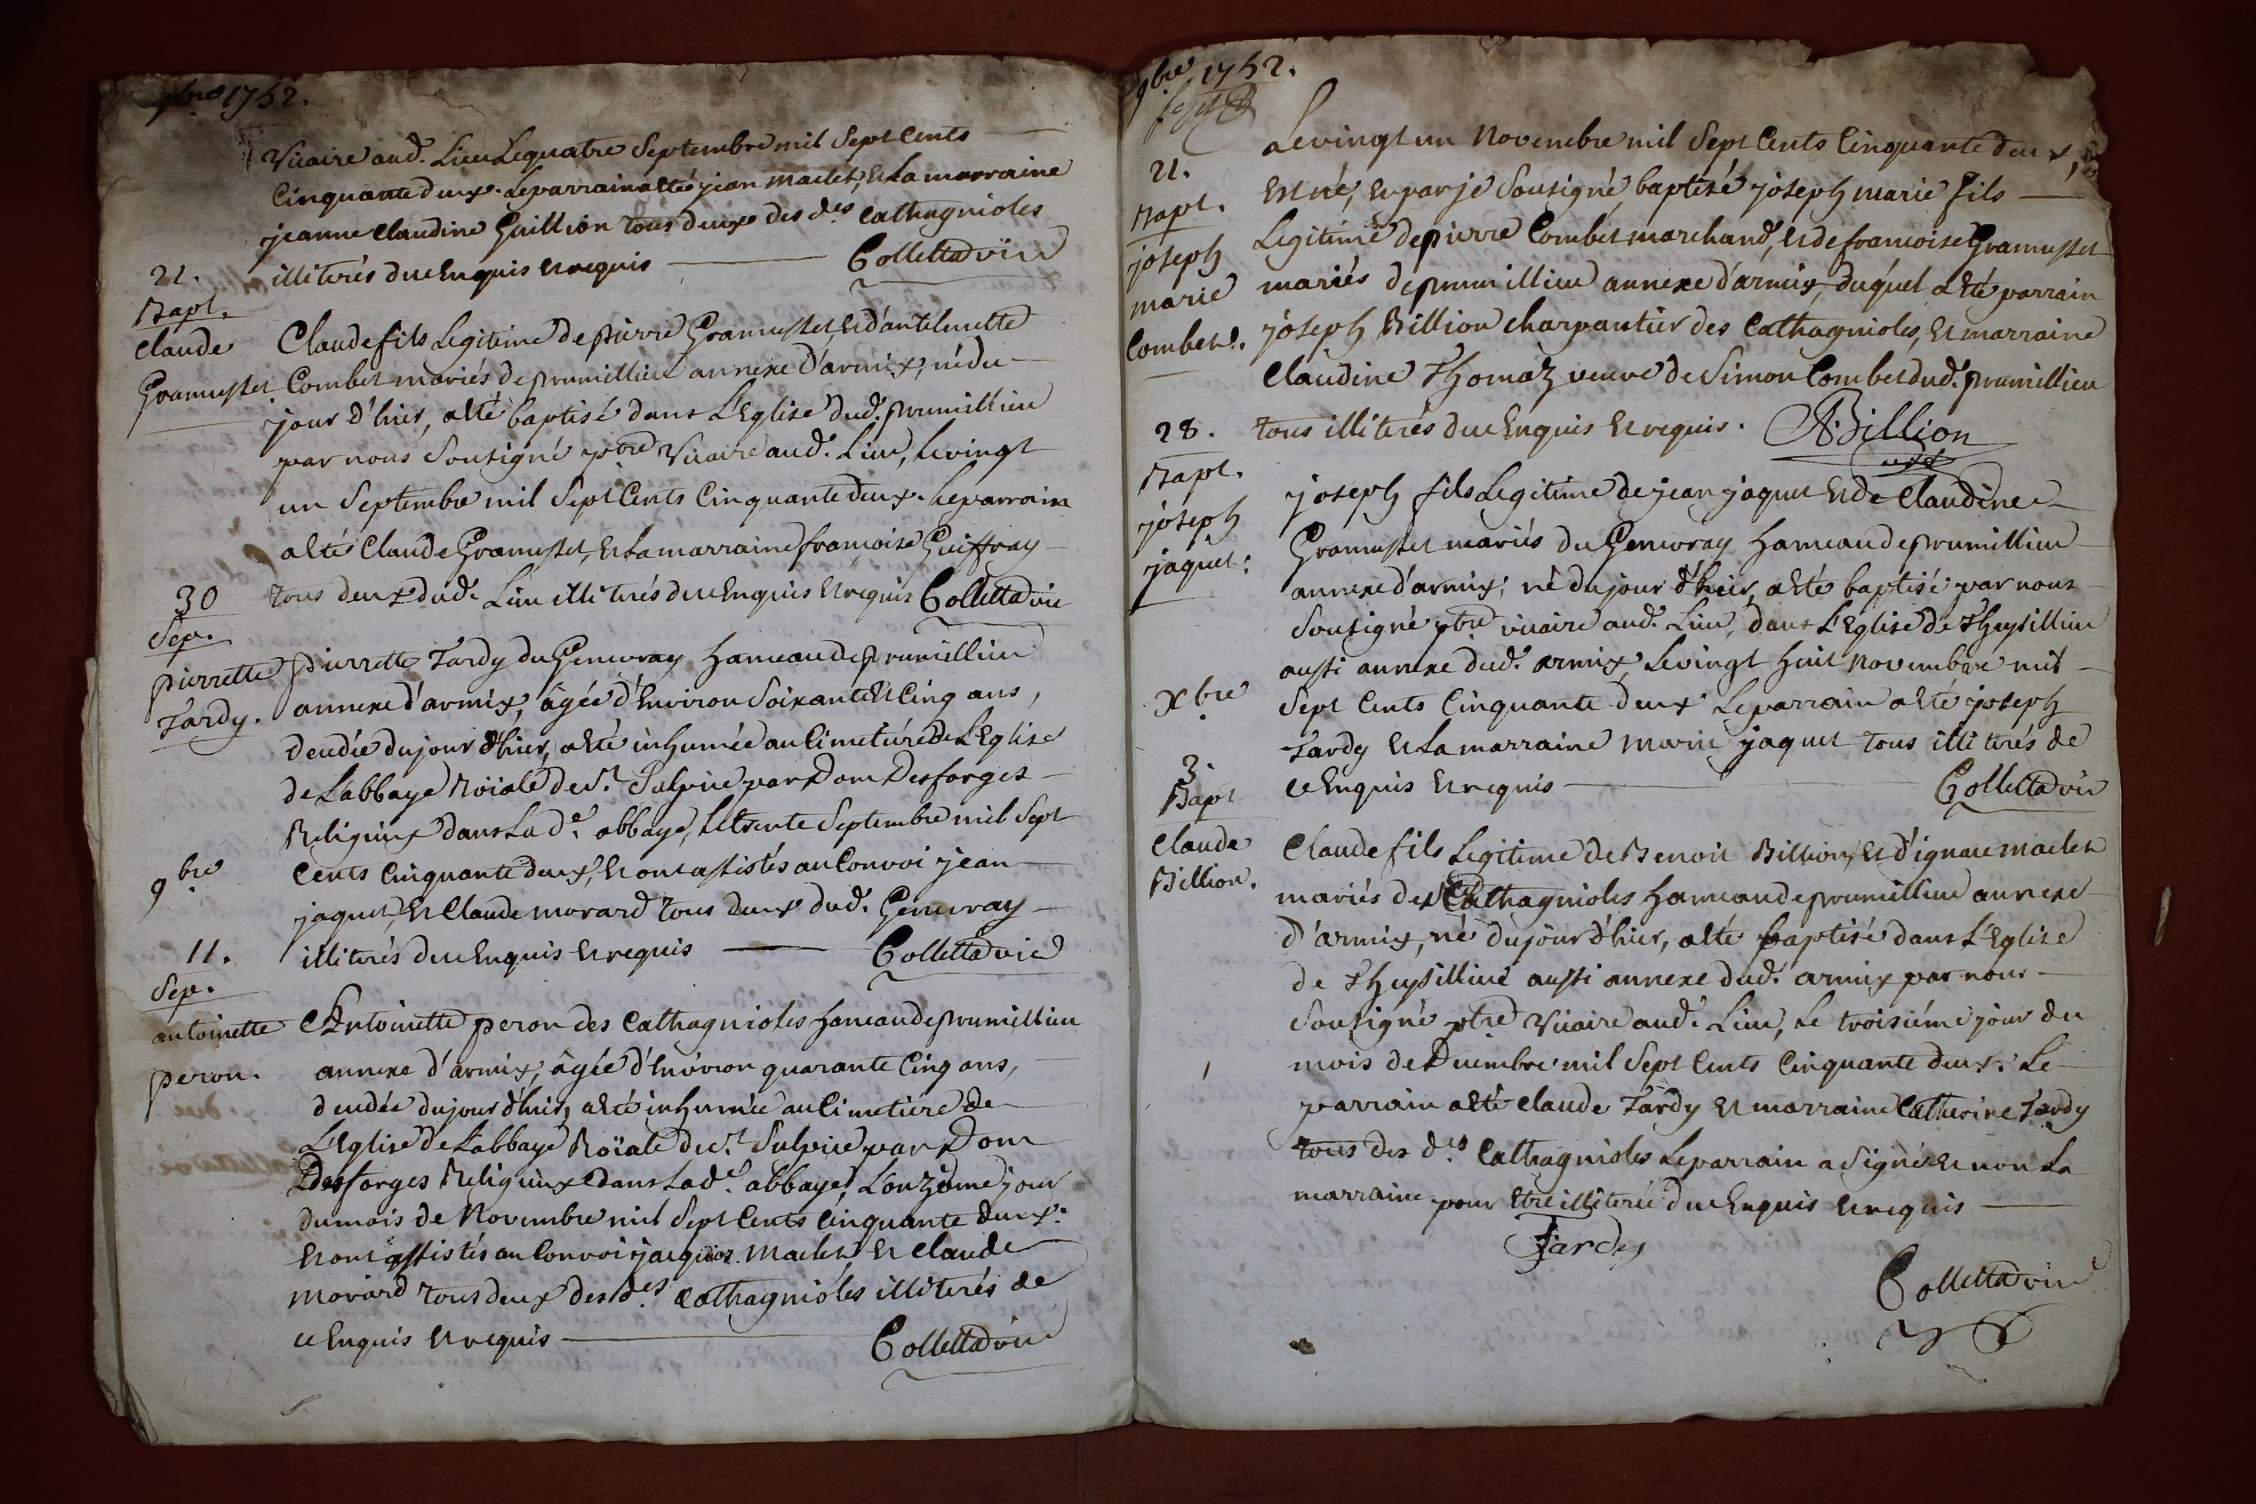 7bre 1752.
Vicaire aud. Lieu Le quatre Septembre mil Sept Cents
Cinquante deux. Le parrain a eté jean maclet, et La marraine
jeanne Claudine Guillion tous deux des des Cathagnioles
illiterés de ce Enquis et requis Colletta vic
21.
Bapt.
Claude
Gramusset.
Claude fils Legitime de pierre Gramusset, et d'antelmette
Combet mariés de prumillieu annexe d'armix, né du
jour d'hier, a eté baptisé dans L'Eglise dud. prumillieu
par nous Sousigné ptre Vicaire aud. Lieu, Le vingt
un Septembre mil Sept Cents Cinquante deux. Le parrain
a eté Claude Gramusset, et La marraine francoise Guiffray
tous deux dud. Lieu illiterés de ce Enquis et requis Colletta vic
30
Sep.
pierrette
Tardy.
pierrette Tardy du Genevray hameau de prumillieu
annexe d'armix, âgée d'Environ Soixante et Cinq ans,
decedée du jour d'hier, a eté inhumée au Cimetiére de L'Eglise
de Labbaye Roïale de St. Sulpice par Dom Desforges
Religieux dans La de. abbaye, Le trente Septembre mil Sept
Cents Cinquante deux, et ont assistés au Convoi jean
jaquet, et Claude morard tous deux dud. Genevray
illiterés de ce Enquis et requis Colletta vic
9bre
11.
Sep.
antoinette
peron.
Antoinette peron des Cathagnioles hameau de prumillieu
annexe d'armix, âgée d'Environ quarante Cinq ans,
decedée du jour d'hier, a eté inhumée au Cimetiere de
L'Eglise de Labbaye Roïale de St. Sulpice par Dom
Desforges Religieux dans La de. abbaye, L'onziéme jour
du mois de Novembre mil Sept Cents Cinquante deux.
et ont assistés au Convoi jacques Maclet et Claude
Morard tous deux des des Cathagnioles illiterés de
ce Enquis et requis Colletta vic
9bre 1752.
21.
Bapt.
joseph
marie
Combet.
Le vingt un Novembre mil Sept Cents Cinquante deux,
est né, et par je Sousigné baptisé joseph marie fils
Legitime de pierre Combet marchand, et de francoise Gramusset
mariés de prumillieu annexe d'armix, duquel a eté parrain
joseph Billion charpantier des Cathagnioles, et marraine
Claudine Thomaz veuve de Simon Combet dud. prumillieu
tous illiterés de ce Enquis et requis. Billion
28.
Bapt.
joseph
jaquet.
joseph fils Legitime de jean jaquet et de Claudine
Gramusset mariés du Genevray hameau de prumillieu
annexe d'armix; né du jour d'hier, a eté baptisé par nous
Sousigné ptre vicaire aud. Lieu, dans L'Eglise de Theysillieu
aussi annexe dud. armix, Le vingt huit Novembre mil
Sept Cents Cinquante deux Le parrain a eté joseph
Tardy et La marraine Marie jaquet tous illiterés de
ce Enquis et requis Colletta vic
Xbre
3.
Bapt
Claude
Billion.
Claude fils Legitime de Benoit Billion, et d'ignace maclet
mariés des Cathagnioles hameau de prumillieu annexe
d'armix, né du jour d'hier, a eté baptisé dans L'Eglise
de Theysillieu aussi annexe dud. armix par nous
Sousigné ptre Vicaire aud. Lieu, Le troisiéme jour du
mois de Decembre mil Sept Cents Cinquante deux. Le
parrain a eté Claude Tardy et marraine Catherine Tardy
tous des des Cathagnioles Le parrain a Signé et non La
marraine pour etre illiterée de ce Enquis et requis
Tardy
Colletta vic